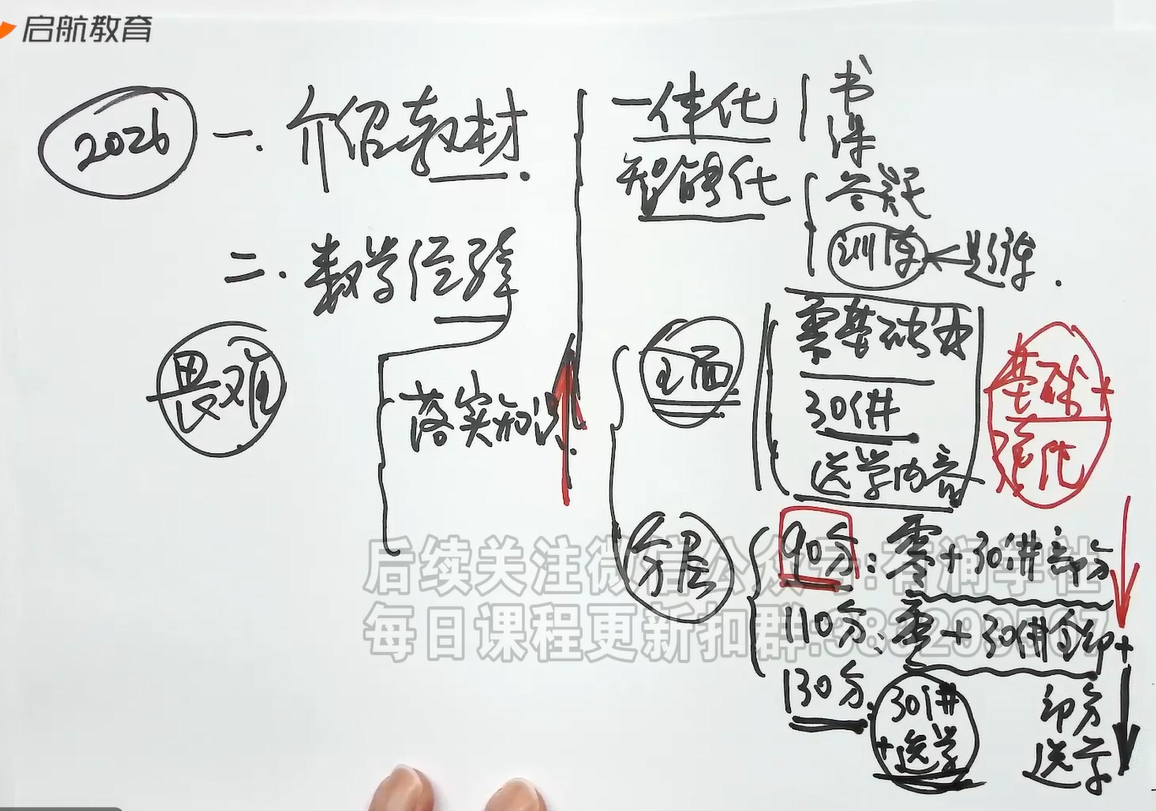 启航教育
2026
一. 介绍教材.
二. 数学经验
畏难
落实知识.
一体化
书
课
智能化
答疑
训练←题源.
全面
零基础课
30讲
选学内容
基础+
强化
分层
90分: 零+30讲部分
110分: 零+30讲全部+
部分
选学
130分.
30讲
+选学
后续关注微信公众号:
每日课程更新扣群: